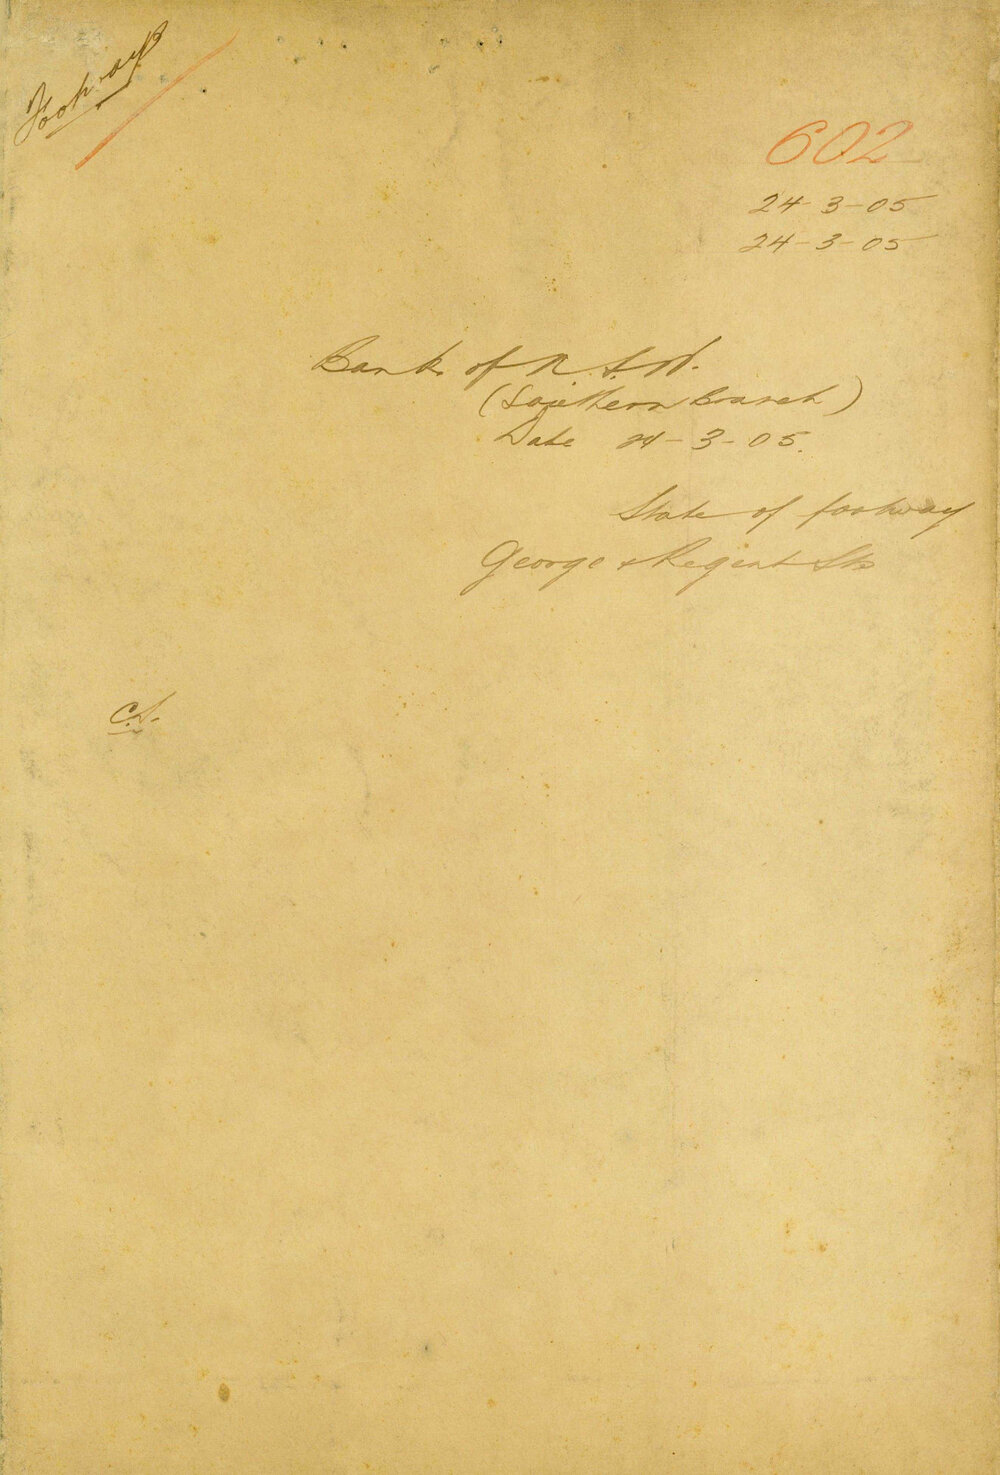 Footway
602
24-3-05
24-3-05
Bank of N.S.W.
(Southern Branch)
Date 24-3-05.
State of footway
George & Regent Sts
C.S.